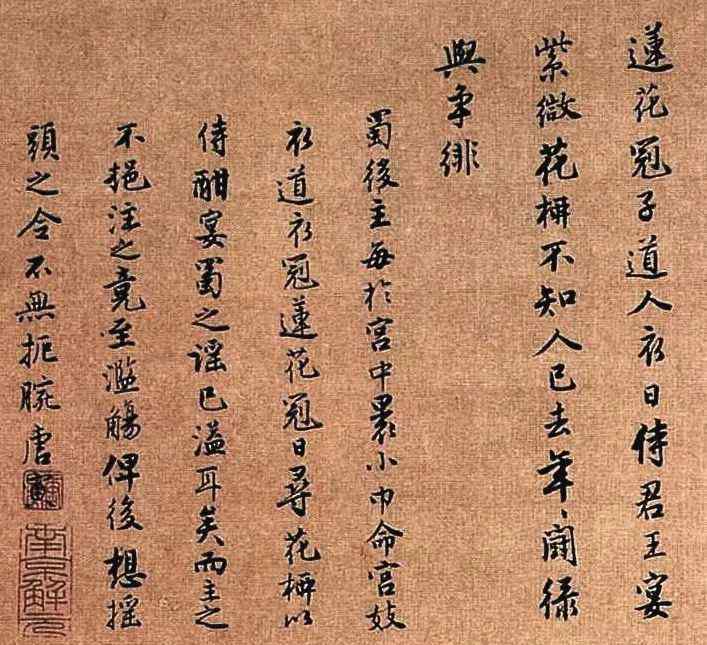 蓮花冠子道人衣日侍君王宴
紫微花柳不知人已去年〻鬥綠
與爭緋
蜀後主每於宮中裹小巾命宮妓
衣道衣冠蓮花冠日尋花柳以
侍酣宴蜀之謠已溢耳矣而主之
不挹注之竟至濫觴俾後想搖
頭之令不無扼腕唐寅
南京解元